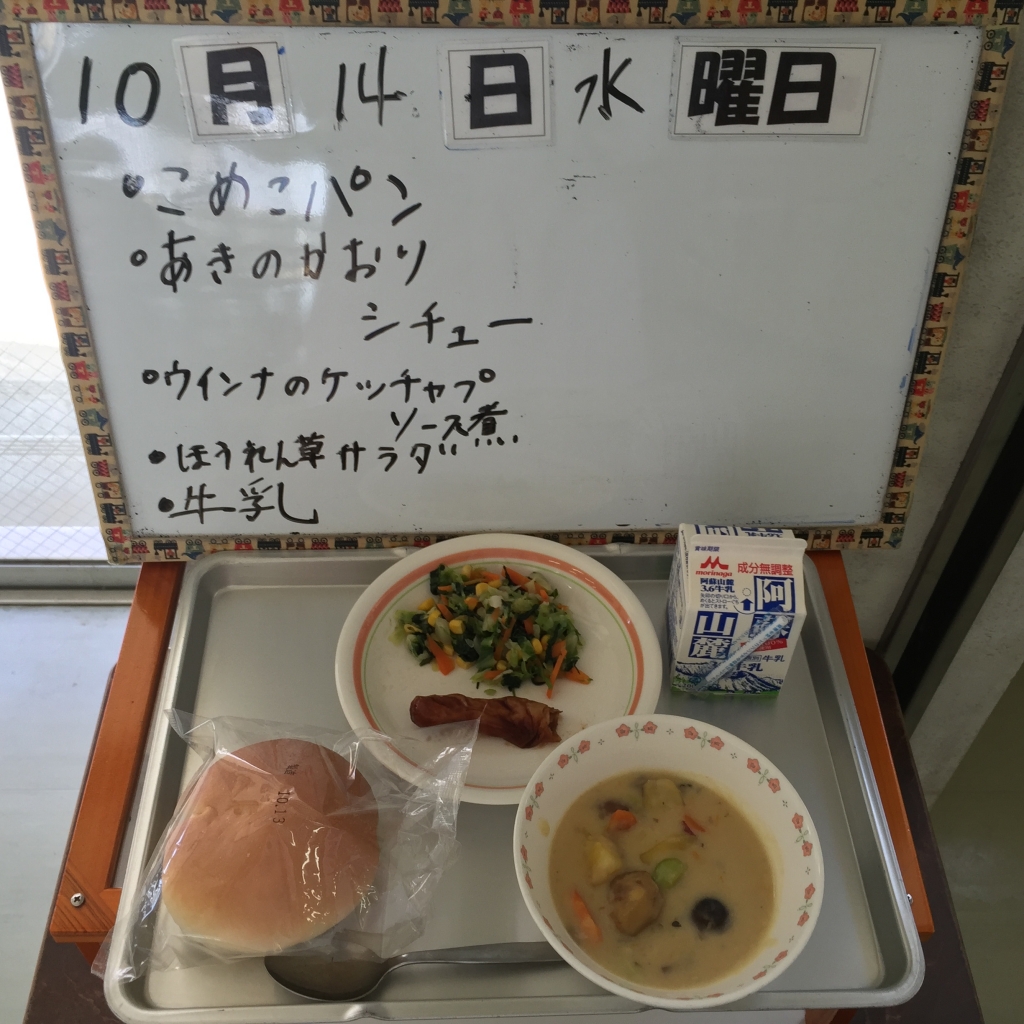 10 月 14 日 水 曜日
・こめこパン
・あきのかおり
シチュー
・ウインナのケッチャップ
ソース煮
・ほうれん草サラダ
・牛乳
morinaga
成分無調整
阿蘇山麓
3.6牛乳
阿蘇
山麓
牛乳
10.13